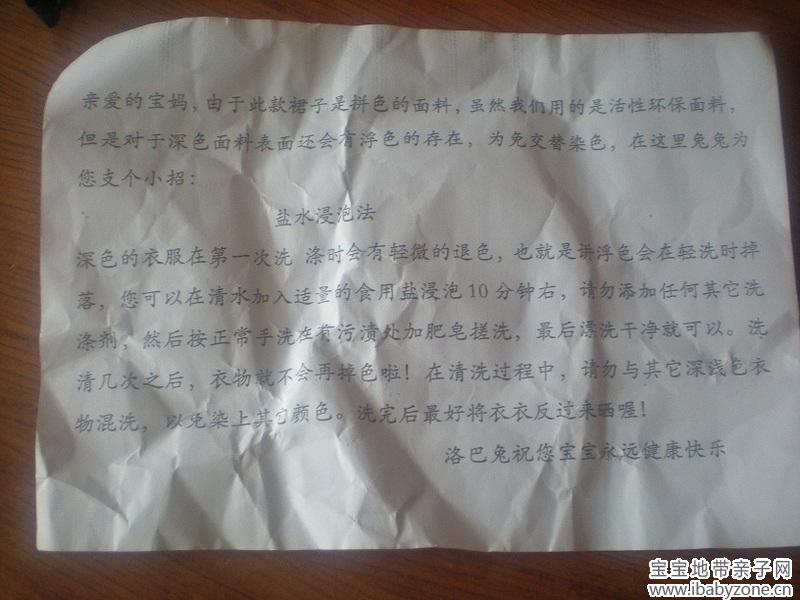 亲爱的宝妈，由于此款裙子是拼色的面料，虽然我们用的是活性环保面料，
但是对于深色面料表面还会有浮色的存在，为免交替染色，在这里兔兔为
您支个小招：
盐水浸泡法
深色的衣服在第一次洗 涤时会有轻微的退色，也就是讲浮色会在轻洗时掉
落，您可以在清水加入适量的食用盐浸泡10分钟右，请勿添加任何其它洗
涤剂，然后按正常手洗在有污渍处加肥皂搓洗，最后漂洗干净就可以。洗
清几次之后，衣物就不会再掉色啦！在清洗过程中，请勿与其它深浅色衣
物混洗，以免染上其它颜色。洗完后最好将衣衣反过来晒喔！
洛巴兔祝您宝宝永远健康快乐
宝宝地带亲子网
www.ibabyzone.cn